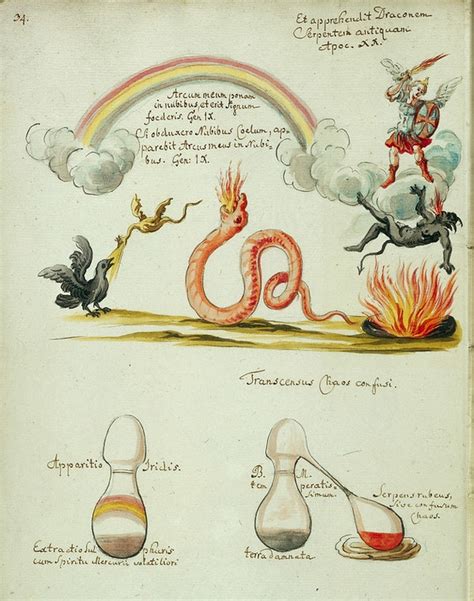 34.
Et apprehendit Draconem
Serpentem antiquam
Apoc. XX.
Arcum meum ponam
in nubibus, et erit signum
foederis. Gen IX.
Si obduxero Nubibus Coelum, ap,
parebit Arcus meus in Nubi,
bus. Gen: IX.
Transcensus Chaos confusi.
Apparitio Iridis.
Extractio Sul phuris
cum Spiritu Mercurii volatiliori
B. M.
tem peratis
simum.
terra damnata
Serpens rubeus,
sive confusum
Chaos.